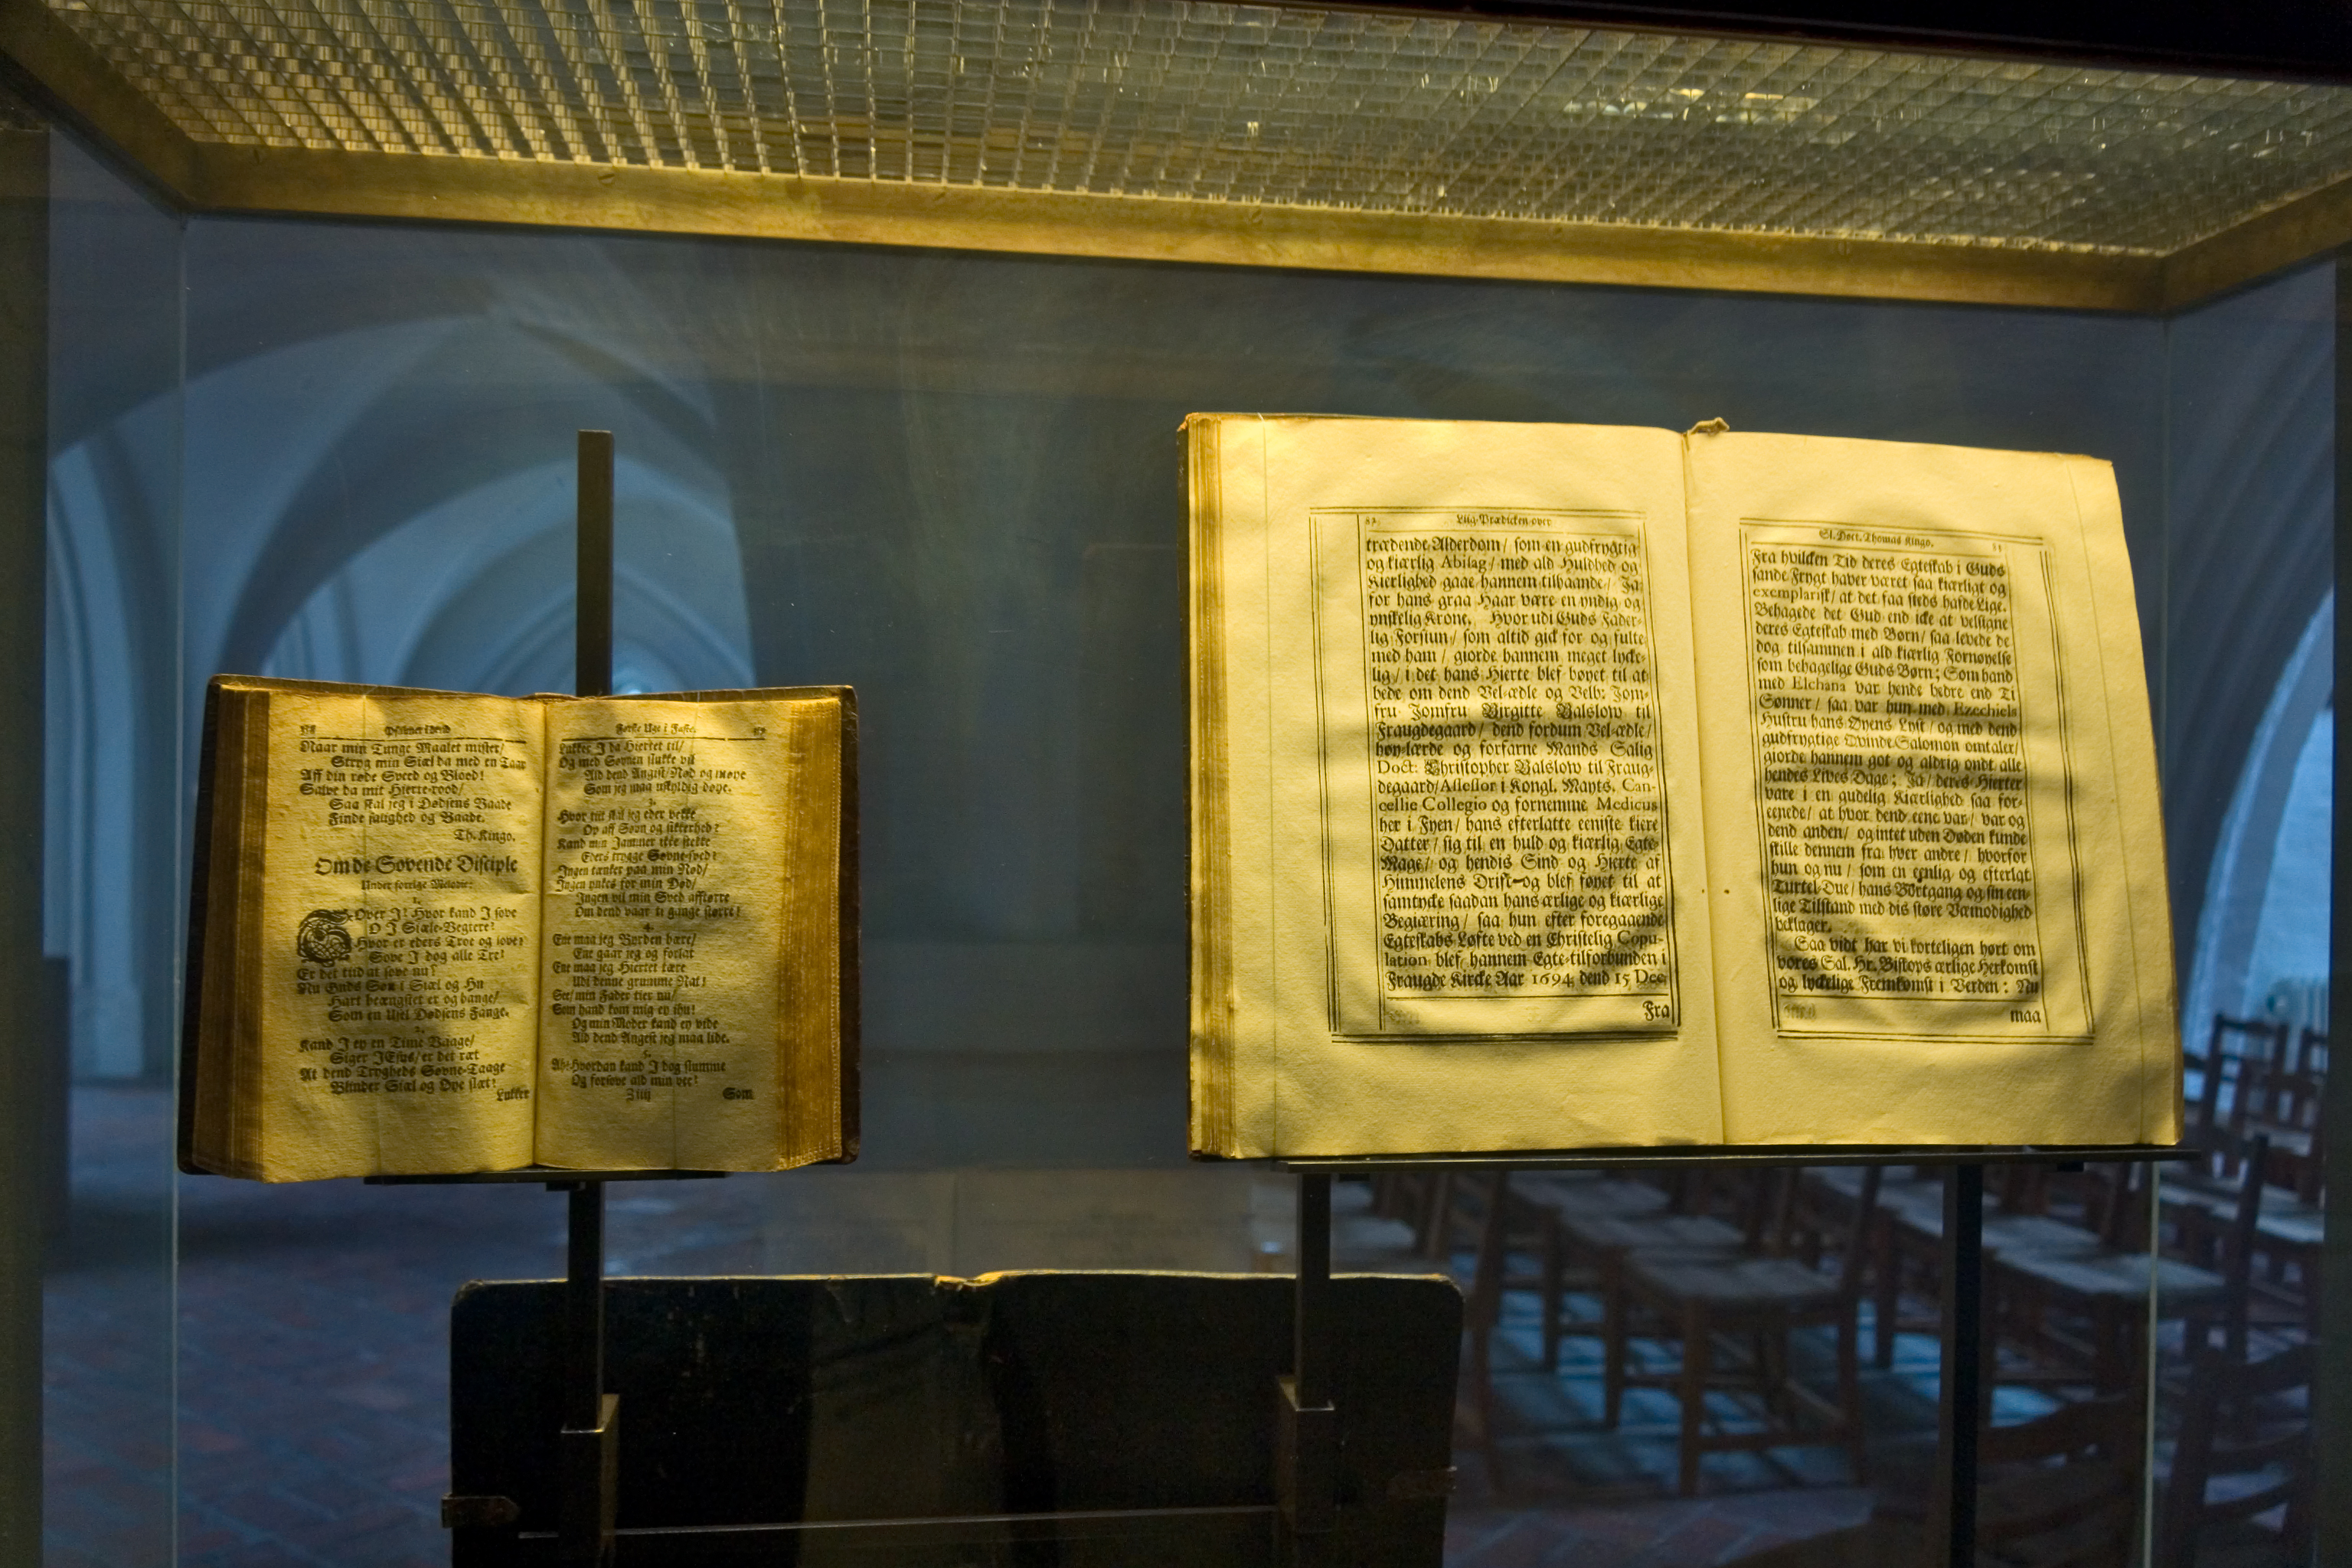 Psalmer i dend
Naar min Tunge Maalet mister/
Stryg min Siæl da med en Taar
Aff din røde Sveed og Blood!
Salve da mit Hierte-rood/
Saa skal jeg i Dødsens Baade
Finde salighed og Baade.
Th. Kingo.
Om de Sovende Disciple
Under forrige Melodie:
1.
Sover I? Hvor kand I sove
O I Siæle-Vegtere?
Hvor er eders Troe og love?
Sove I dog alle Tre?
Er det tiid at sove nu?
Nu Guds Søn i Siæl og Hu
Hart beængstet er og bange/
Som en Usel Dødsens Fange.
2.
Kand I ey en Time Vaage/
Siger JEsus/er det ræt
At dend Trygheds Søvne-Taage
Blinder Siæl og Øye slæt?
Lukker
Første Uge i Faste.
Lukker I da Hiertet til/
Og med Søvnen slukke vil
Ald dend Angist/Nød og møye
Som jeg maa uskyldig døye.
3.
Hvor tiit skal jeg eder vekke
Op aff Søvn og sikkerhed?
Kand min Jammer ikke stekke
Eders trygge Søvne-sved?
Ingen tænker paa min Nød/
Ingen ynkes for min Død/
Ingen vil min Sved afftørre
Om dend vaar ti gange større!
4.
Ene maa jeg Byrden bære/
Ene gaar jeg og forlat
Ene maa jeg Hiertet tære
Udi denne grumme Nat!
See/ min Fader tier nu/
Som hand kom mig ey ihu!
Og min Moder kand ey vide
Ald dend Angest jeg maa lide.
5.
Ah! Hvordan kand I dog slumme
Og forsove ald min vee?
Som
Liig-Prædicken over
trædende Alderdom/ som en gudfrygtig
og kiærlig Abisag/ med ald Huldhed og
Kierlighed gaae hannem tilhaande/ Ja
for hans graa Haar være en yndig og
ynskelig Krone. Hvor udi Guds Fader-
lig Forsiun/ som altid gick for og fulte
med ham/ giorde hannem meget lycke-
lig/ i det hans Hierte blef bøyet til at
bede om dend Vel-ædle og Velb: Jom-
fru Jomfru Birgitte Balslow til
Fraugdegaard/ dend fordum Vel-ædle/
høy-lærde og forfarne Mands Salig
Doct: Christopher Balslow til Fraug-
degaard/Assessor i Kongl. Mayts. Can-
cellie Collegio og fornemme Medicus
her i Fyen/ hans efterlatte eeniste kiere
Datter/ sig til en huld og kiærlig Egte-
Mage/ og hendis Sind og Hierte af
Himmelens Drift og blef føyet til at
samtycke saadan hans ærlige og kiærlige
Begiæring/ saa hun efter foregaaende
Egteskabs Løfte ved en Christelig Copu-
lation blef hannem Egte-tilforbunden i
Fraugde Kircke Aar 1694 dend 15 Dec.
Fra
Sl. Doct. Thomas Kingo.
Fra hvilcken Tid deres Egteskab i Guds
sande Frygt haver været saa kiærligt og
exemplarisk/ at det faa steds hafde Lige.
Behagede det Gud end icke at velsigne
deres Egteskab med Børn/ saa levede de
dog tilsammen i ald kiærlig Fornøyelse
som behagelige Guds Børn; Som hand
med Elchana var hende bedre end Ti
Sønner/ saa var hun med Ezechiels
Hustru hans Øyens Lyst/ og med dend
gudfrygtige Qvinde Salomon omtaler/
giorde hannem got og aldrig ondt alle
hendes Lives Dage; Ja/ deres Hierter
vare i en gudelig Kiærlighed saa for-
eenede/ at hvor dend eene var/ var og
dend anden/ og intet uden Døden kunde
skille dennem fra hver andre/ hvorfor
hun og nu/ som en eenlig og efterlat
Turtel-Due/ hans Bortgang og sin een-
lige Tilstand med dis støre Væmodighed
beklager.
Saa vidt har vi korteligen hørt om
vores Sal. Hr. Biskops ærlige Herkomst
og lyckelige Fremkomst i Verden: Nu
maa